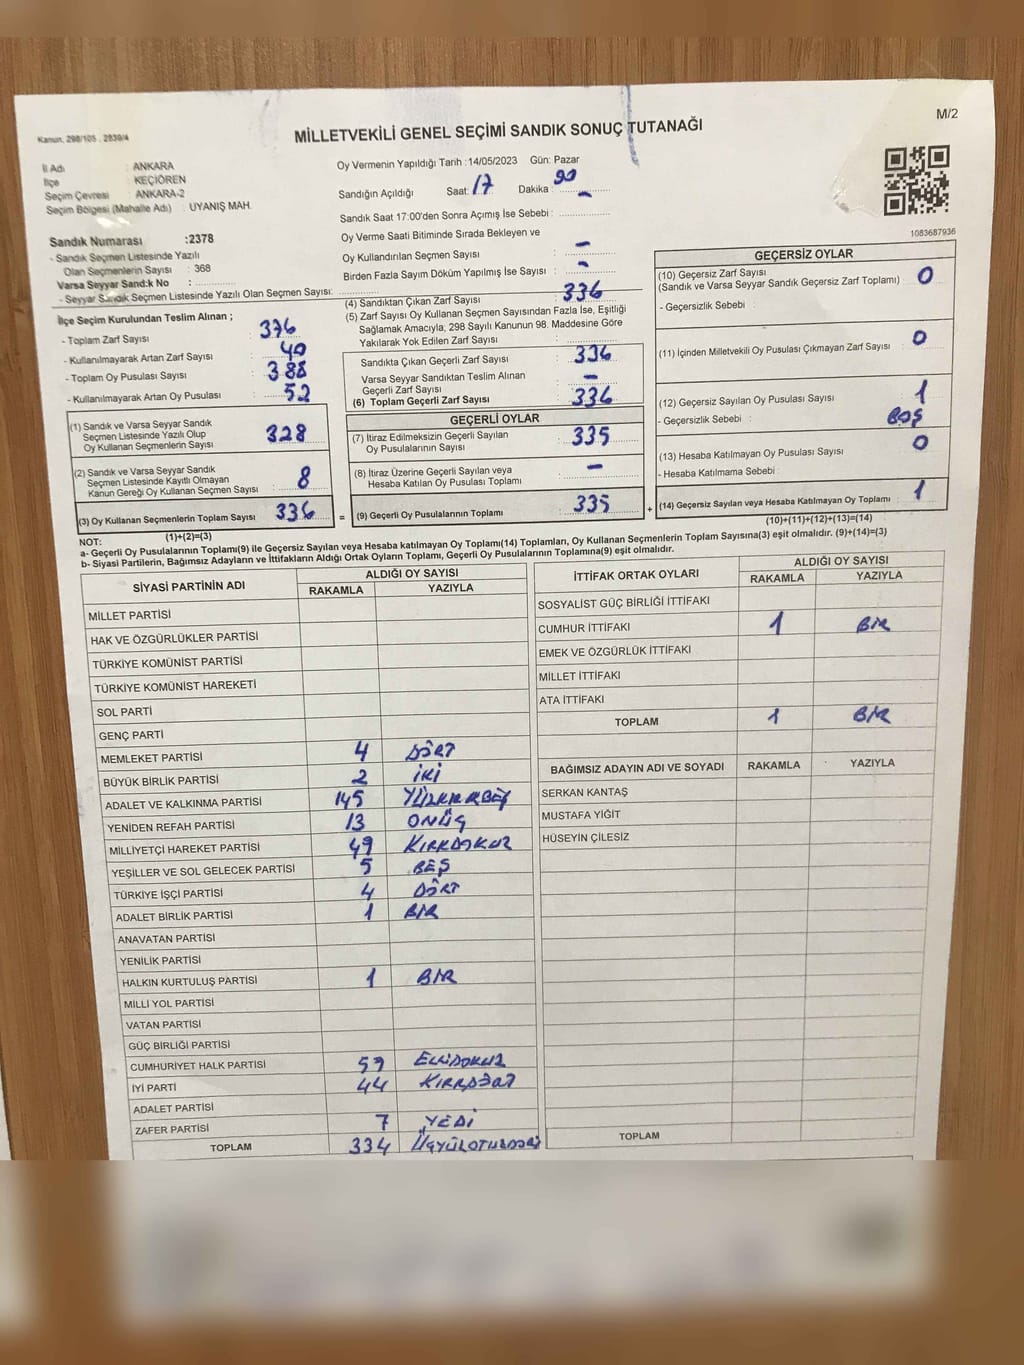 Kanun, 298/105 , 2839/4
M/2
MİLLETVEKİLİ GENEL SEÇİMİ SANDIK SONUÇ TUTANAĞI
İl Adı : ANKARA
İlçe : KEÇİÖREN
Seçim Çevresi : ANKARA-2
Seçim Bölgesi (Mahalle Adı) : UYANIŞ MAH.
Sandık Numarası :2378
- Sandık Seçmen Listesinde Yazılı
Olan Seçmenlerin Sayısı : 368
Varsa Seyyar Sandık No :
- Seyyar Sandık Seçmen Listesinde Yazılı Olan Seçmen Sayısı:
Oy Vermenin Yapıldığı Tarih :14/05/2023 Gün: Pazar
Sandığın Açıldığı Saat: 17 Dakika :
Sandık Saat 17:00'den Sonra Açımış İse Sebebi :
Oy Verme Saati Bitiminde Sırada Bekleyen ve
Oy Kullandırılan Seçmen Sayısı : -
Birden Fazla Sayım Döküm Yapılmış İse Sayısı : -
1083687936
İlçe Seçim Kurulundan Teslim Alınan ;
- Toplam Zarf Sayısı : 376
- Kullanılmayarak Artan Zarf Sayısı : 40
- Toplam Oy Pusulası Sayısı : 388
- Kullanılmayarak Artan Oy Pusulası : 52
(1) Sandık ve Varsa Seyyar Sandık
Seçmen Listesinde Yazılı Olup
Oy Kullanan Seçmenlerin Sayısı : 328
(2) Sandık ve Varsa Seyyar Sandık
Seçmen Listesinde Kayıtlı Olmayan
Kanun Gereği Oy Kullanan Seçmen Sayısı : 8
(3) Oy Kullanan Seçmenlerin Toplam Sayısı 336
(1)+(2)=(3)
(4) Sandıktan Çıkan Zarf Sayısı : 336
(5) Zarf Sayısı Oy Kullanan Seçmen Sayısından Fazla İse, Eşitliği
Sağlamak Amacıyla; 298 Sayılı Kanunun 98. Maddesine Göre
Yakılarak Yok Edilen Zarf Sayısı :
Sandıkta Çıkan Geçerli Zarf Sayısı : 336
Varsa Seyyar Sandıktan Teslim Alınan
Geçerli Zarf Sayısı : -
(6) Toplam Geçerli Zarf Sayısı : 336
GEÇERLİ OYLAR
(7) İtiraz Edilmeksizin Geçerli Sayılan
Oy Pusulalarının Sayısı : 335
(8) İtiraz Üzerine Geçerli Sayılan veya
Hesaba Katılan Oy Pusulası Toplamı : -
= (9) Geçerli Oy Pusulalarının Toplamı : 335
GEÇERSİZ OYLAR
(10) Geçersiz Zarf Sayısı
(Sandık ve Varsa Seyyar Sandık Geçersiz Zarf Toplamı) : 0
- Geçersizlik Sebebi :
(11) İçinden Milletvekili Oy Pusulası Çıkmayan Zarf Sayısı : 0
(12) Geçersiz Sayılan Oy Pusulası Sayısı : 1
- Geçersizlik Sebebi : BOŞ
(13) Hesaba Katılmayan Oy Pusulası Sayısı : 0
- Hesaba Katılmama Sebebi :
+ (14) Geçersiz Sayılan veya Hesaba Katılmayan Oy Toplamı : 1
(10)+(11)+(12)+(13)=(14)
NOT:
a- Geçerli Oy Pusulalarının Toplamı(9) ile Geçersiz Sayılan veya Hesaba katılmayan Oy Toplamı(14) Toplamları, Oy Kullanan Seçmenlerin Toplam Sayısına(3) eşit olmalıdır. (9)+(14)=(3)
b- Siyasi Partilerin, Bağımsız Adayların ve İttifakların Aldığı Ortak Oyların Toplamı, Geçerli Oy Pusulalarının Toplamına(9) eşit olmalıdır.
SİYASİ PARTİNİN ADI
ALDIĞI OY SAYISI
RAKAMLA YAZIYLA
MİLLET PARTİSİ
HAK VE ÖZGÜRLÜKLER PARTİSİ
TÜRKİYE KOMÜNİST PARTİSİ
TÜRKİYE KOMÜNİST HAREKETİ
SOL PARTİ
GENÇ PARTİ
MEMLEKET PARTİSİ 4 DÖRT
BÜYÜK BİRLİK PARTİSİ 2 İKİ
ADALET VE KALKINMA PARTİSİ 145 YÜZKIRKBEŞ
YENİDEN REFAH PARTİSİ 13 ONÜÇ
MİLLİYETÇİ HAREKET PARTİSİ 49 KIRKDOKUZ
YEŞİLLER VE SOL GELECEK PARTİSİ 5 BEŞ
TÜRKİYE İŞÇİ PARTİSİ 4 DÖRT
ADALET BİRLİK PARTİSİ 1 BİR
ANAVATAN PARTİSİ
YENİLİK PARTİSİ
HALKIN KURTULUŞ PARTİSİ 1 BİR
MİLLİ YOL PARTİSİ
VATAN PARTİSİ
GÜÇ BİRLİĞİ PARTİSİ
CUMHURİYET HALK PARTİSİ 59 ELLİDOKUZ
İYİ PARTİ 44 KIRKDÖRT
ADALET PARTİSİ
ZAFER PARTİSİ 7 YEDİ
TOPLAM 334 ÜÇYÜZOTUZDÖRT
İTTİFAK ORTAK OYLARI
ALDIĞI OY SAYISI
RAKAMLA YAZIYLA
SOSYALİST GÜÇ BİRLİĞİ İTTİFAKI
CUMHUR İTTİFAKI 1 BİR
EMEK VE ÖZGÜRLÜK İTTİFAKI
MİLLET İTTİFAKI
ATA İTTİFAKI
TOPLAM 1 BİR
BAĞIMSIZ ADAYIN ADI VE SOYADI RAKAMLA YAZIYLA
SERKAN KANTAŞ
MUSTAFA YİĞİT
HÜSEYİN ÇİLESİZ
TOPLAM